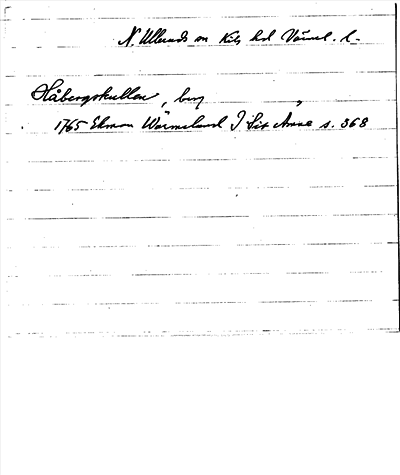 N. Ullerud sn Kils hd Värml. l.
Håbergskullen, berg "
1765 Ekman Wärmeland I Sid s. 368